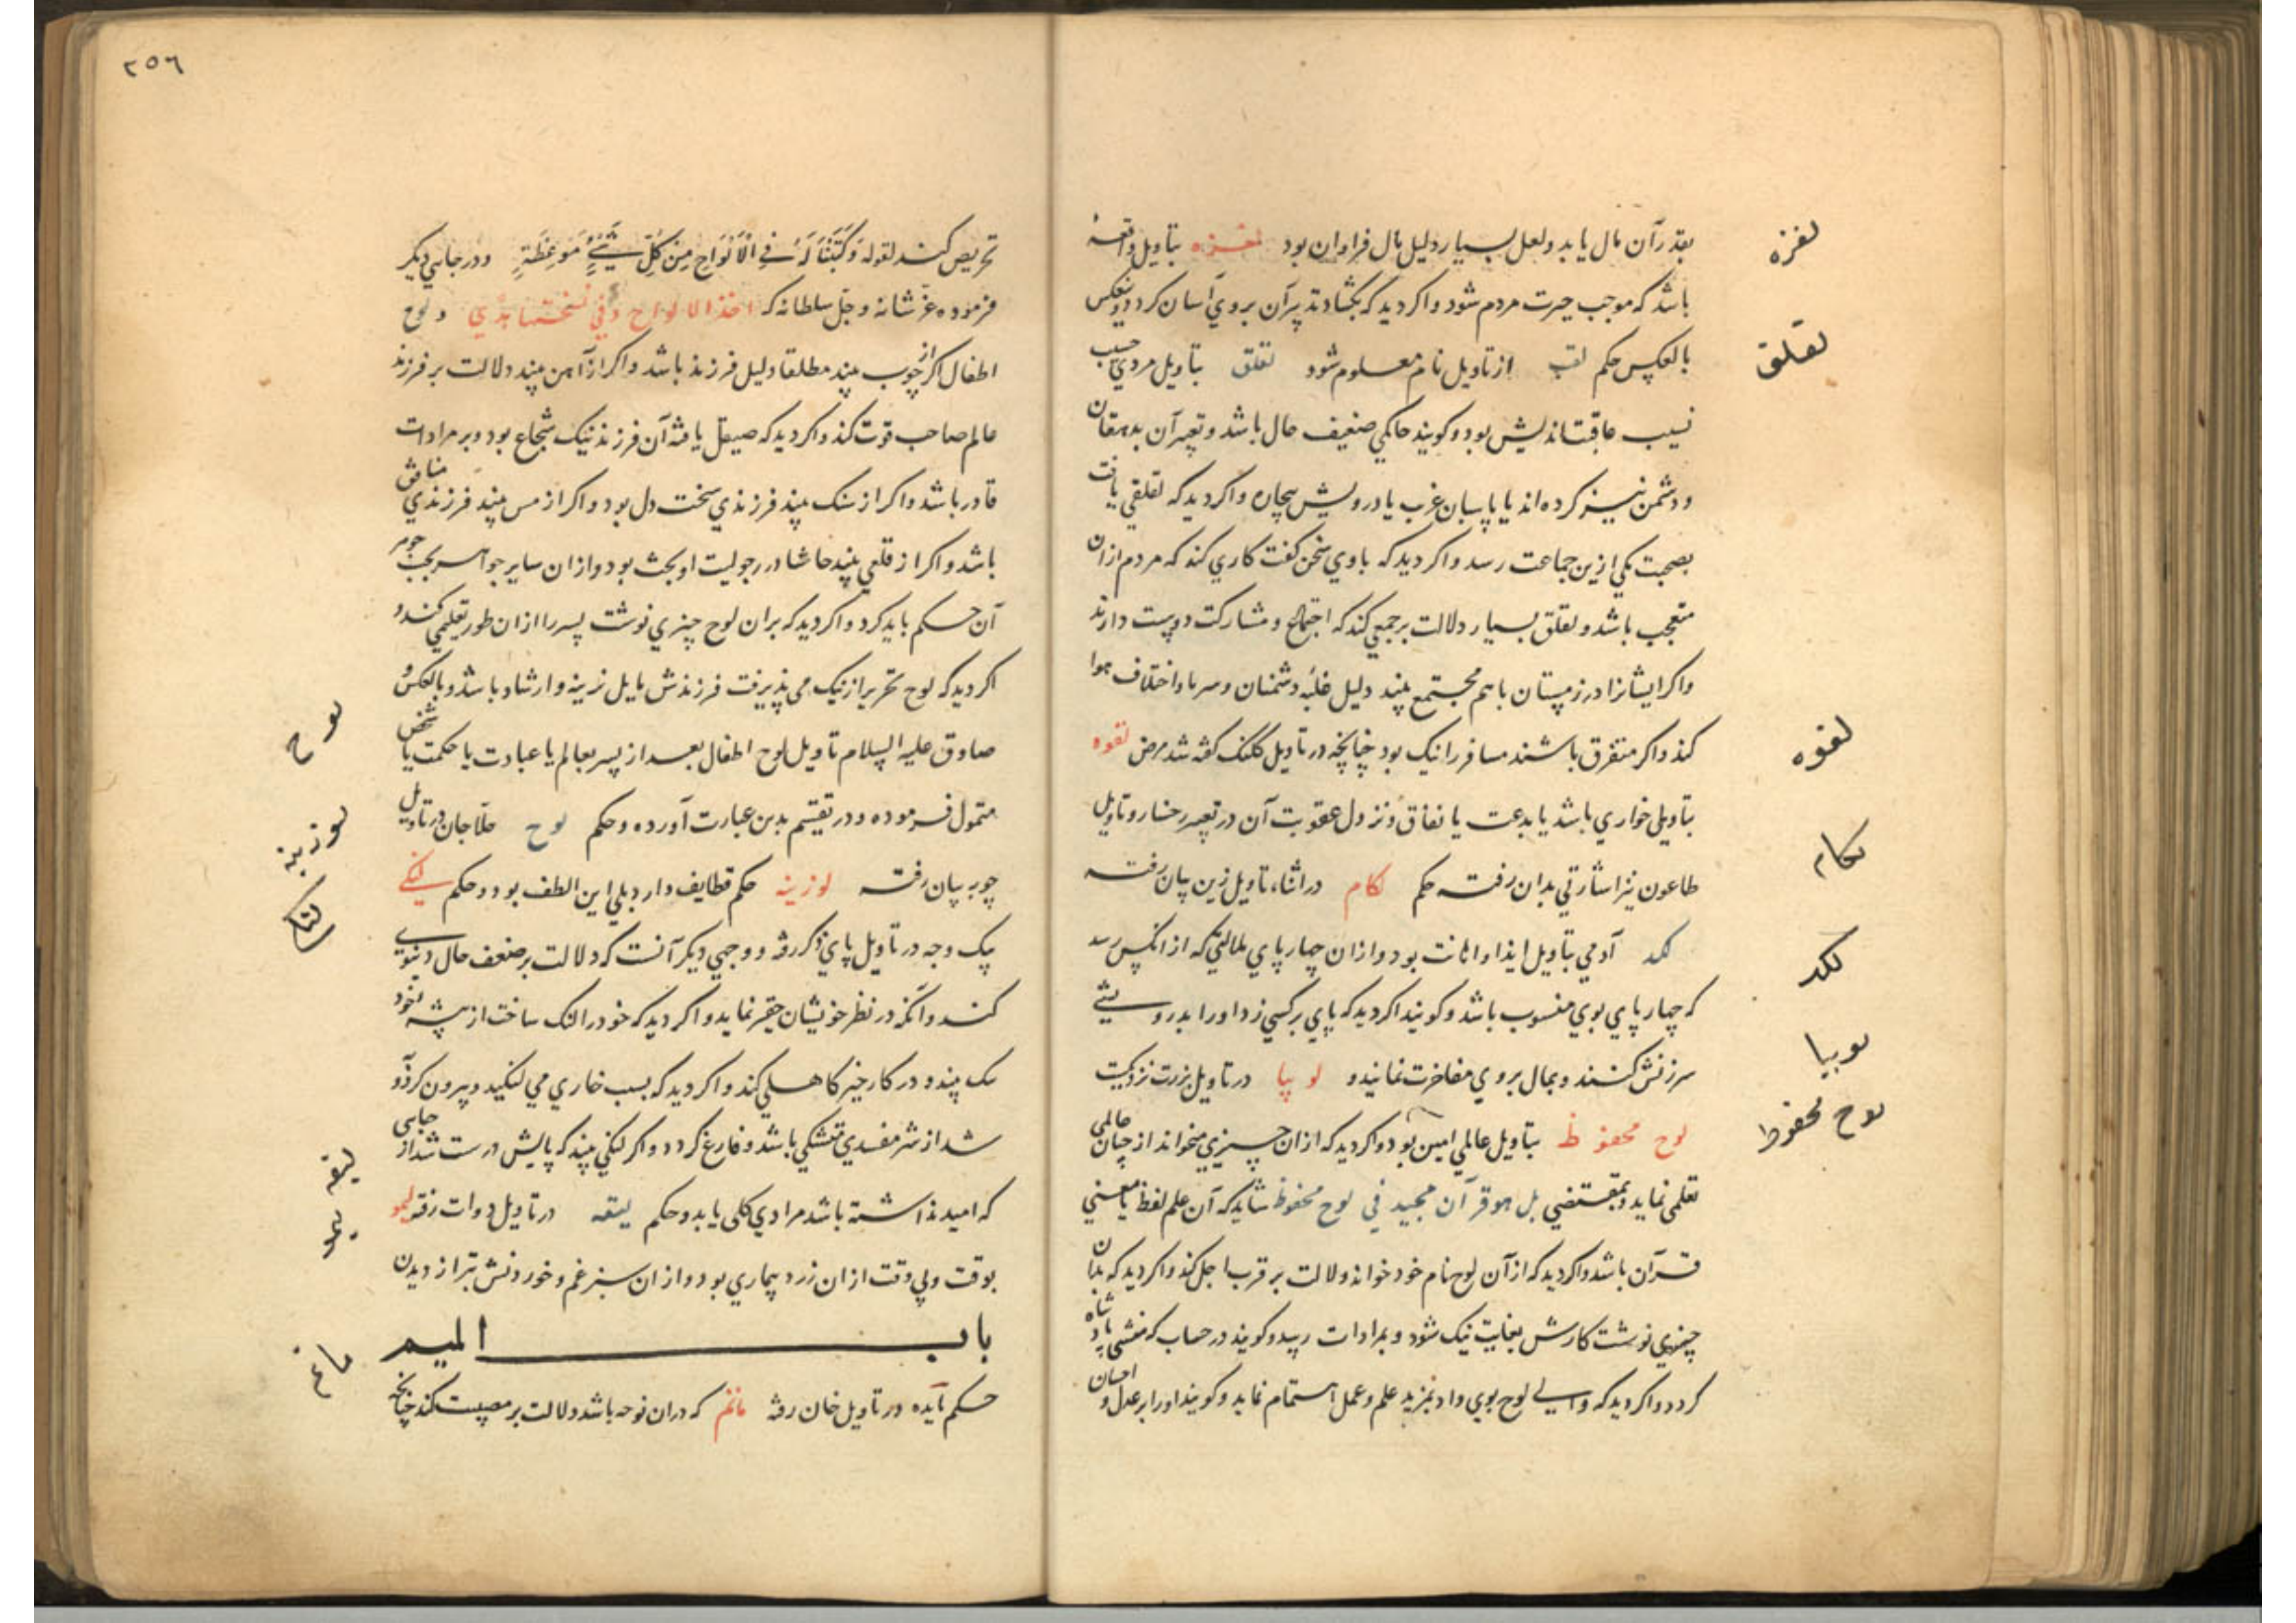 بقدر آن مال یابد و لعل بسیار دلیل مال فراوان بود لغزه بتاویل واقعهٔ
لغزه
باشد که موجب حیرت مردم شود و اکر دید که بکشاد تدبیر آن بروی آسان کردد و بعکس
بالعکس حکم لقب از تاویل نام معلوم شود لقلق بتاویل مردی حسیب
لقلق
نسیب عاقبت اندیش بود و کویند حاکمی ضعیف حال باشد و تعبیر آن بدهقان
و دشمن نیز کرده اند یا پاسبان غریب یا درویش بیچاره و اکر دید که لقلقی یافت
بصحبت یکی ازین جماعت رسد و اکر دید که با وی سخن کفت کاری کند که مردم ازان
متعجب باشد و لقلق بسیار دلالت بر جمعی کند که اجتماع و مشارکت دوست دارند
و اکر ایشانرا در زمستان باهم مجتمع بیند دلیل غلبه دشمنان و سرما و اختلاف هوا
کند و اکر متفرق باشند مسافر را نیک بود چنانچه در تاویل کلنک کفته شد مرض لقوه
لقوه
بتاویل خواری باشد یا بدعت یا نفاق و نزول عقوبت آن در تعبیر رخسار و تاویل
طاعون نیز اشارتی بدان رفته حکم لکام در اثناء تاویل زین بیان رفته
لکام
لکد آدمی بتاویل ایذا و اهانت بود و ازان چهارپای بمالتی که از انکس رسد
لکد
که چهارپای بوی منسوب باشد و کویند اکر دید که پای برکسی زد او را بدرویشی
سرزنش کنند و بمال بروی مفاخرت نمایند و لوبیا در تاویل بزرت نزدیکست
لوبیا
لوح محفوظ بتاویل عالمی امین بود و اکر دید که ازان چیزی میخواند از چنان عالمی
لوح محفوظ
تعلمی نماید و بمقتضی بل هو قرآن مجید فی لوح محفوظ شاید که آن علم لفظ یا معنی
قرآن باشد و اکر دید که از آن لوح نام خود خواند دلالت بر قرب اجل کند و اکر دید که بدان
چیزی نوشت کارش بغایت نیک شود و بمرادات رسد و کویند در حساب که منشی پادشاه
کردد و اکر دید که والی لوح بوی داد بمزید علم و عمل اهتمام نماید و کویند او را بر عدل و احسان
٢٥٦
تحریص کنند لقوله وَكَتَبْنَا لَهُ فِي الْأَلْوَاحِ مِن كُلِّ شَيْءٍ مَوْعِظَةٍ و در جایی دیکر
فرموده عز شانه و جل سلطانه که اخذ الالواح و فی نسختها هدی و لوح
اطفال اکر از چوب بیند مطلقا دلیل فرزند باشد و اکر از آهن بیند دلالت بر فرزند
عالم صاحب قوت کند و اکر دید که صیقل یافته آن فرزند نیک شجاع بود و بر مرادات
قادر باشد و اکر از سنک بیند فرزندی سخت دل بود و اکر از مس بیند فرزندی منافق
باشد و اکر از قلعی بیند حاشا در رجولیت او بحث بود و ازان سایر جواهر بحسب جوهر
آن حکم باید کرد و اکر دید که بران لوح چیزی نوشت پسر را ازان طور تعلیمی کند و
اکر دید که لوح تحریر از نیک می پذیرفت فرزندش مایل زینه و ارشاد باشد و بالعکس و
لوح
صادق علیه السلام تاویل لوح اطفال بعد از پسر بعالم یا عبادت یا حکمت یا شخص
متمول فرموده و در تقسیم بدین عبارت آورده و حکم لوح حلاجان در تاویل
لوزینه
چوبه بیان رفته لوزینه حکم قطایف دارد بلی این الطف بود و حکم لنکی
لنک
یک وجه در تاویل پای ذکر رفته و وجهی دیکر آنست که دلالت بر ضعف حال دنیوی
کند و آنکه در نظر خویشان حقیر نماید و اکر دید که خود را لنک ساخت از پیشه خود
بیند و در کار خیر کاهلی کند و اکر دید که بسبب خاری می لنکید و بیرون کرد و
شد از شر مفسدی متشکی باشد و فارغ کردد و اکر لنکی بیند که پایش درست شد از جایی
که امید نداشته باشد مرادی کلی یابد و حکم لیقه در تاویل دوات رفته لیمو
لیقه
لیمو
بوقت و بی وقت ازان زرد بیماری بود و ازان سبز غم و خوردنش بتر از دیدن
باب المیم
حکم مآیده در تاویل خان رفته ماتم که دران نوحه باشد دلالت بر مصیبت کند چنانچه
ماتم